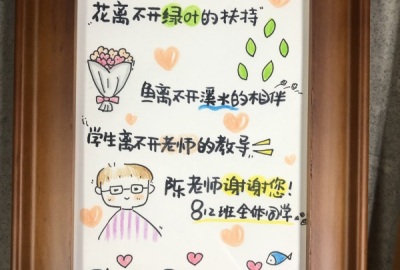 花离不开绿叶的扶持
鱼离不开溪水的相伴
学生离不开老师的教导
陈老师谢谢您!
812班全体同学